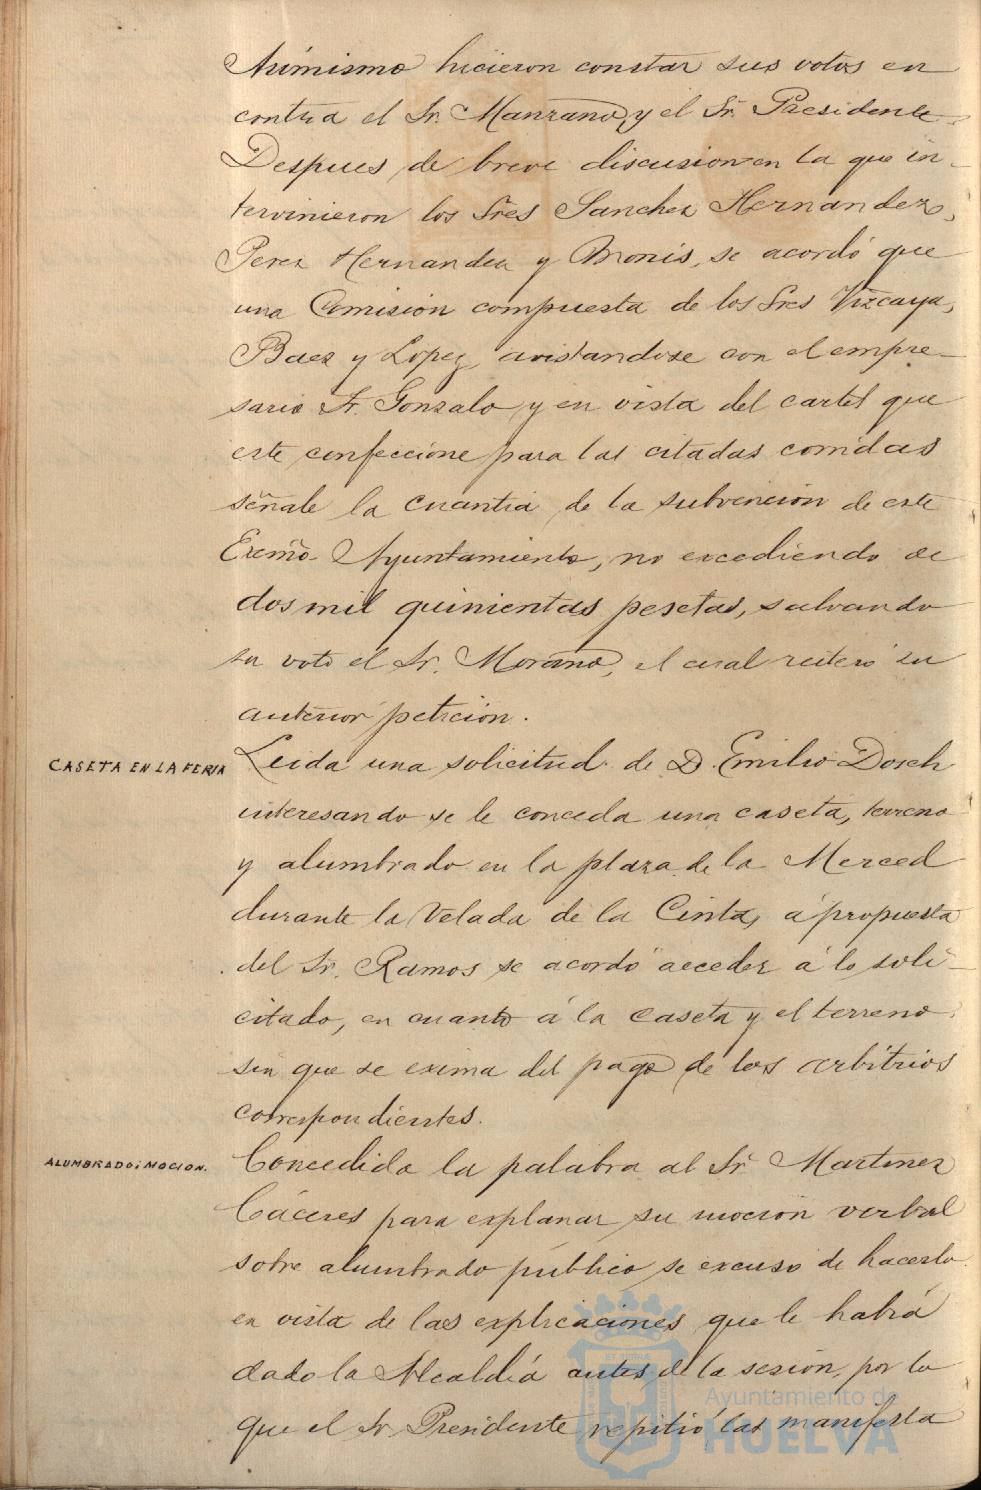 Asimismo hicieron constar sus votos en
contra el Sr. Manzano y el Sr. Presidente.
Despues de breve discusion en la que in-
tervinieron los Sres Sanchez Hernandez,
Perez Hernandez y Monis, se acordó que
una Comision compuesta de los Sres Vizcaya,
Baez y Lopez, avistandose con el empre-
sario Sr. Gonzalo y en vista del cartel que
este confeccione para las citadas corridas
señale la cuantia de la subvencion de este
Excmo. Ayuntamiento, no excediendo de
dos mil quinientas pesetas, salvando
su voto el Sr. Morano, el cual reiteró su
anterior petición.
CASETA EN LA FERIA
Leida una solicitud de D. Emilio Dosch
interesando se le conceda una caseta, terreno
y alumbrado en la plaza de la Merced
durante la Velada de la Cinta, á propuesta
del Sr. Ramos se acordó acceder á lo soli-
citado, en cuanto á la caseta y el terreno
sin que se exima del pago de los arbitrios
correspondientes.
ALUMBRADO: MOCION.
Concedida la palabra al Sr. Martinez
Cáceres para explanar su mocion verbal
sobre alumbrado público se excusó de hacerlo
en vista de las explicaciones que le habia
dado la Alcaldía antes de la sesion, por lo
que el Sr Presidente repitió las manifesta
Ayuntamiento de
HUELVA